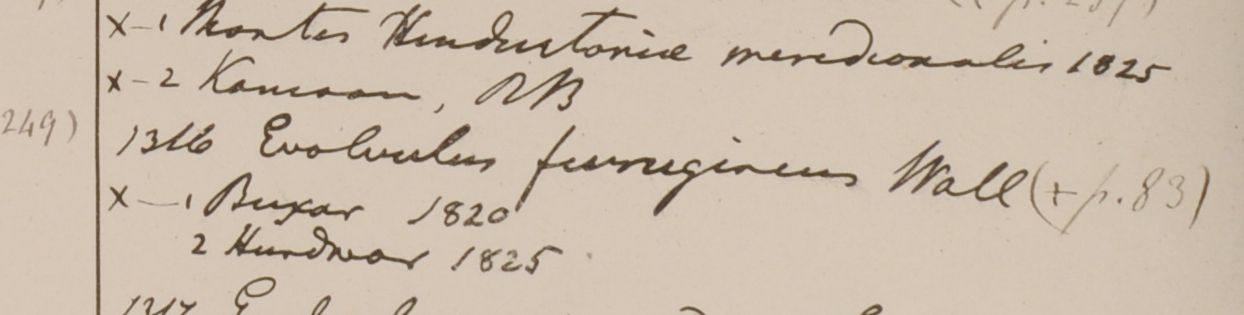 x-1 Montes Hindustaniæ meridionalis 1825
x-2 Kamaon, RB
249)
1316 Evolvulus ferrugineus Wall (+ p. 83)
x-1 Buxar 1820
2 Hurdwar 1825
1317